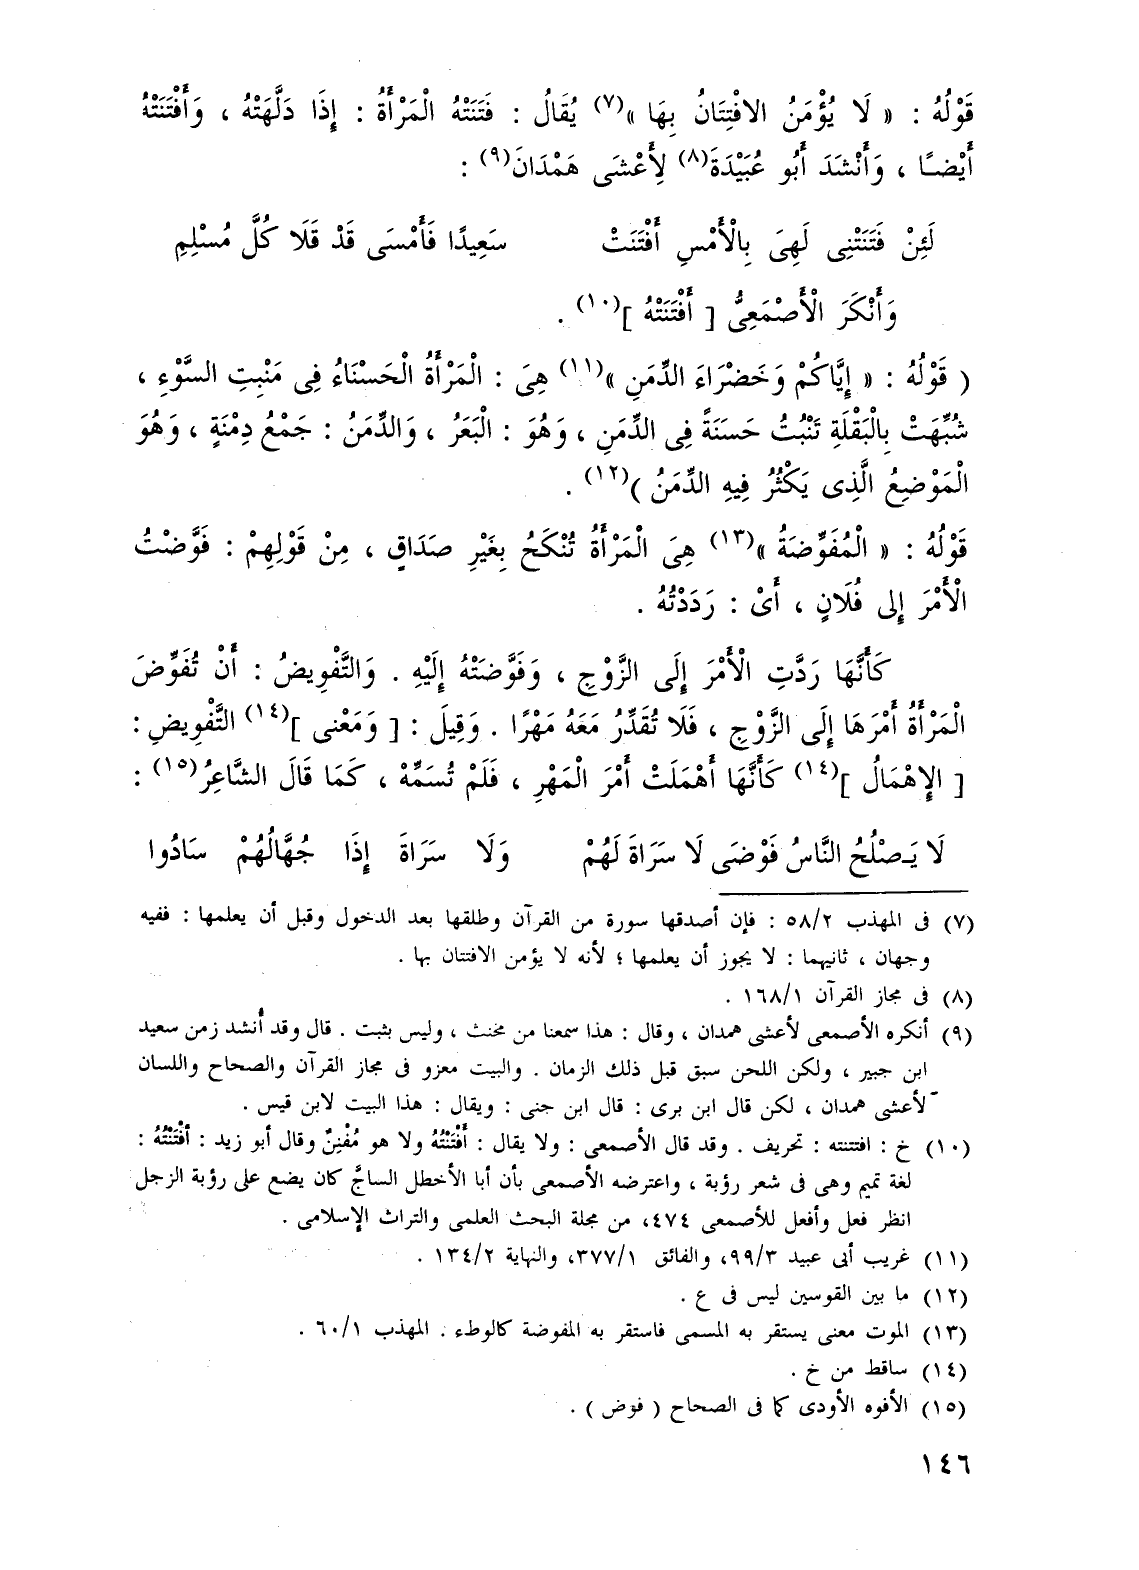 قَوْلُهُ : « لَا يُؤْمَنُ الافْتِتَانُ بِهَا »(٧) يُقَالُ : فَتَنَتْهُ الْمَرْأَةُ : إِذَا دَلَّهَتْهُ ، وَأَفْتَنَتْهُ
أَيْضًا ، وَأَنْشَدَ أَبُو عُبَيْدَةَ(٨) لِأَعْشَى هَمْدَانَ(٩) :
لَئِنْ فَتَنَتْنِى لَهِىَ بِالْأَمْسِ أَفْتَنَتْ سَعِيدًا فَأَمْسَى قَدْ قَلَا كُلَّ مُسْلِمِ
وَأَنْكَرَ الْأَصْمَعِىُّ [ أَفْتَنَتْهُ ](١٠) .
( قَوْلُهُ : « إِيَّاكُمْ وَخَضْرَاءَ الدِّمَنِ »(١١) هِىَ : الْمَرْأَةُ الْحَسْنَاءُ فِى مَنْبِتِ السَّوْءِ ،
شُبِّهَتْ بِالْبَقْلَةِ تَنْبُتُ حَسَنَةً فِى الدِّمَنِ ، وَهُوَ : الْبَعَرُ ، وَالدِّمَنُ : جَمْعُ دِمْنَةٍ ، وَهُوَ
الْمَوْضِعُ الَّذِى يَكْثُرُ فِيهِ الدِّمَنُ )(١٢) .
قَوْلُهُ : « الْمُفَوِّضَةُ »(١٣) هِىَ الْمَرْأَةُ تُنْكَحُ بِغَيْرِ صَدَاقٍ ، مِنْ قَوْلِهِمْ : فَوَّضْتُ
الْأَمْرَ إِلى فُلَانٍ ، أَىْ : رَدَدْتُهُ .
كَأَنَّهَا رَدَّتِ الْأَمْرَ إِلَى الزَّوْجِ ، وَفَوَّضَتْهُ إِلَيْهِ . وَالتَّفْوِيضُ : أَنْ تُفَوِّضَ
الْمَرْأَةُ أَمْرَهَا إِلَى الزَّوْجِ ، فَلَا تُقَدِّرُ مَعَهُ مَهْرًا . وَقِيلَ : [ وَمَعْنى ](١٤) التَّفْوِيضِ :
[ الإِهْمَالُ ](١٤) كَأَنَّهَا أَهْمَلَتْ أَمْرَ الْمَهْرِ ، فَلَمْ تُسَمِّهْ ، كَمَا قَالَ الشَّاعِرُ(١٥) :
لَا يَصْلُحُ النَّاسُ فَوْضَى لَا سَرَاةَ لَهُمْ وَلَا سَرَاةَ إِذَا جُهَّالُهُمْ سَادُوا
(٧) فى المهذب ٥٨/٢ : فإن أصدقها سورة من القرآن وطلقها بعد الدخول وقبل أن يعلمها : ففيه
وجهان ، ثانيهما : لا يجوز أن يعلمها ؛ لأنه لا يؤمن الافتتان بها .
(٨) فى مجاز القرآن ١٦٨/١ .
(٩) أنكره الأصمعى لأعشى همدان ، وقال : هذا سمعنا من مخنث ، وليس بثبت . قال وقد أُنشد زمن سعيد
ابن جبير ، ولكن اللحن سبق قبل ذلك الزمان . والبيت معزو فى مجاز القرآن والصحاح واللسان
لأعشى همدان ، لكن قال ابن برى : قال ابن جنى : ويقال : هذا البيت لابن قيس .
(١٠) خ : افتتنته : تحريف . وقد قال الأصمعى : ولا يقال : أَفْتَنْتُهُ ولا هو مُفْتِنٌ وقال أبو زيد : أَفْتَنْتُهُ :
لغة تميم وهى فى شعر رؤبة ، واعترضه الأصمعى بأن أبا الأخطل الساجَّ كان يضع على رؤبة الزجل
انظر فعل وأفعل للأصمعى ٤٧٤، من مجلة البحث العلمى والتراث الإسلامى .
(١١) غريب أبى عبيد ٩٩/٣، والفائق ٣٧٧/١، والنهاية ١٣٤/٢ .
(١٢) ما بين القوسين ليس فى ع .
(١٣) الموت معنى يستقر به المسمى فاستقر به المفوضة كالوطء . المهذب ٦٠/١ .
(١٤) ساقط من خ .
(١٥) الأفوه الأودى كما فى الصحاح ( فوض ) .
١٤٦